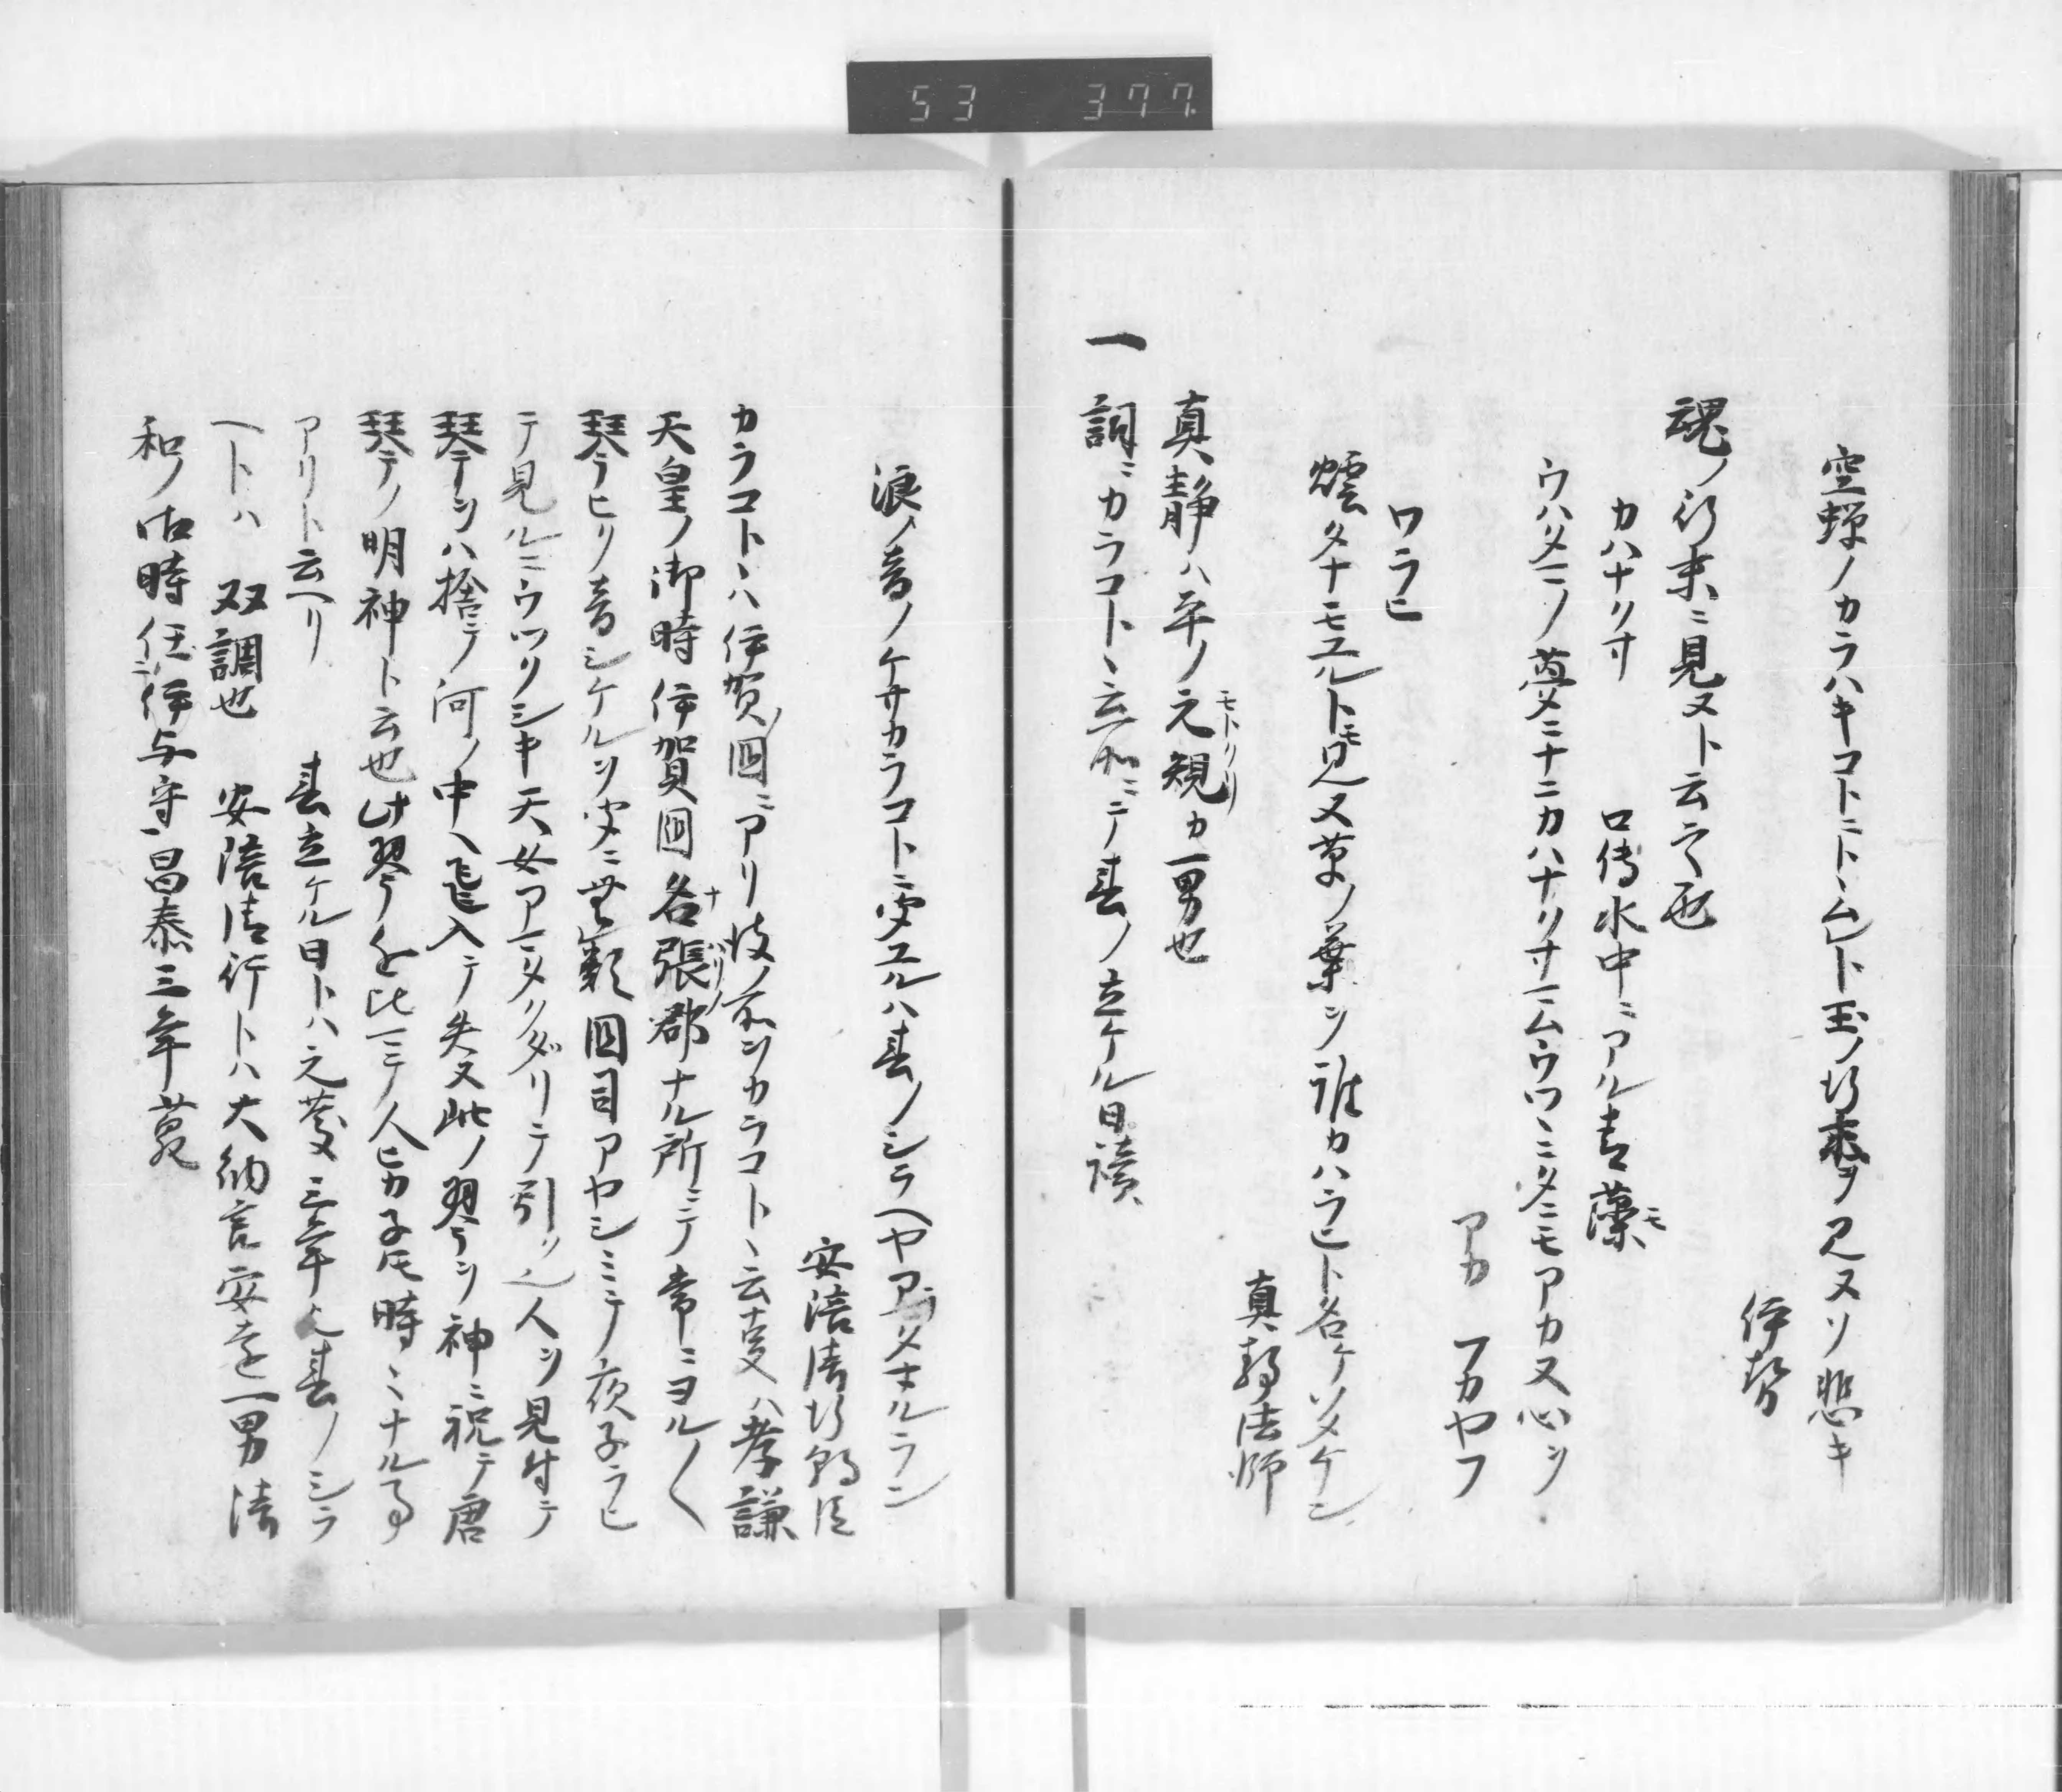 53 377
空蝉ノカラハキコトニトヽムレト玉ノ行衛ヲ見ヌソ悲キ
伊勢
魂ノ行末ニ見ヌト云之也
カハナクサ 口傳水中ニアル青藻モ
ウハタマノ夢ニナニカハナクサマムウツヽニタニモアカヌ心ヲ
アカ アカヤフ
ワラヒ
煙タチモユルトモ見ヌ草ノ葉ヲ誰カハラヒト名ケソメケン
真静法師
真静ハ平ノ元規モトノリカ一男也
一 詞ニカラコトヽ云所ニテ春ノ立ケル日読
浪ノ音ノケサカラコトニ聞ユルハ春ノシラヘヤアラタマルラン
安倍清行朝臣
カラコトハ伊賀ノ国ニアリ彼ノ所ヲカラコトヽ云支ハ孝謙
天皇ノ御時伊賀国名ナ張ハリノ郡ナル所ニテ常ニヨル〱
琴ヲヒク音シケルヲ聞ニ無類国司アヤシミテ夜子ラヒ
テ見ルニウツクシキ天女アマタクダリテ引ク人ヲ見付テ
琴ヲハ捨テ河ノ中ヘ逃入テ失ヌ此ノ琴ヲ神ニ祝テ唐
琴ノ明神ト云也此琴ノ
アリト云ヘリ 春立ケル日トハ元慶三年ノ春ノシラ
ヘトハ 双調也 安倍清行トハ大納言安﻿一男清
和ノ御時任ニ伊与守ニ昌泰三年薨